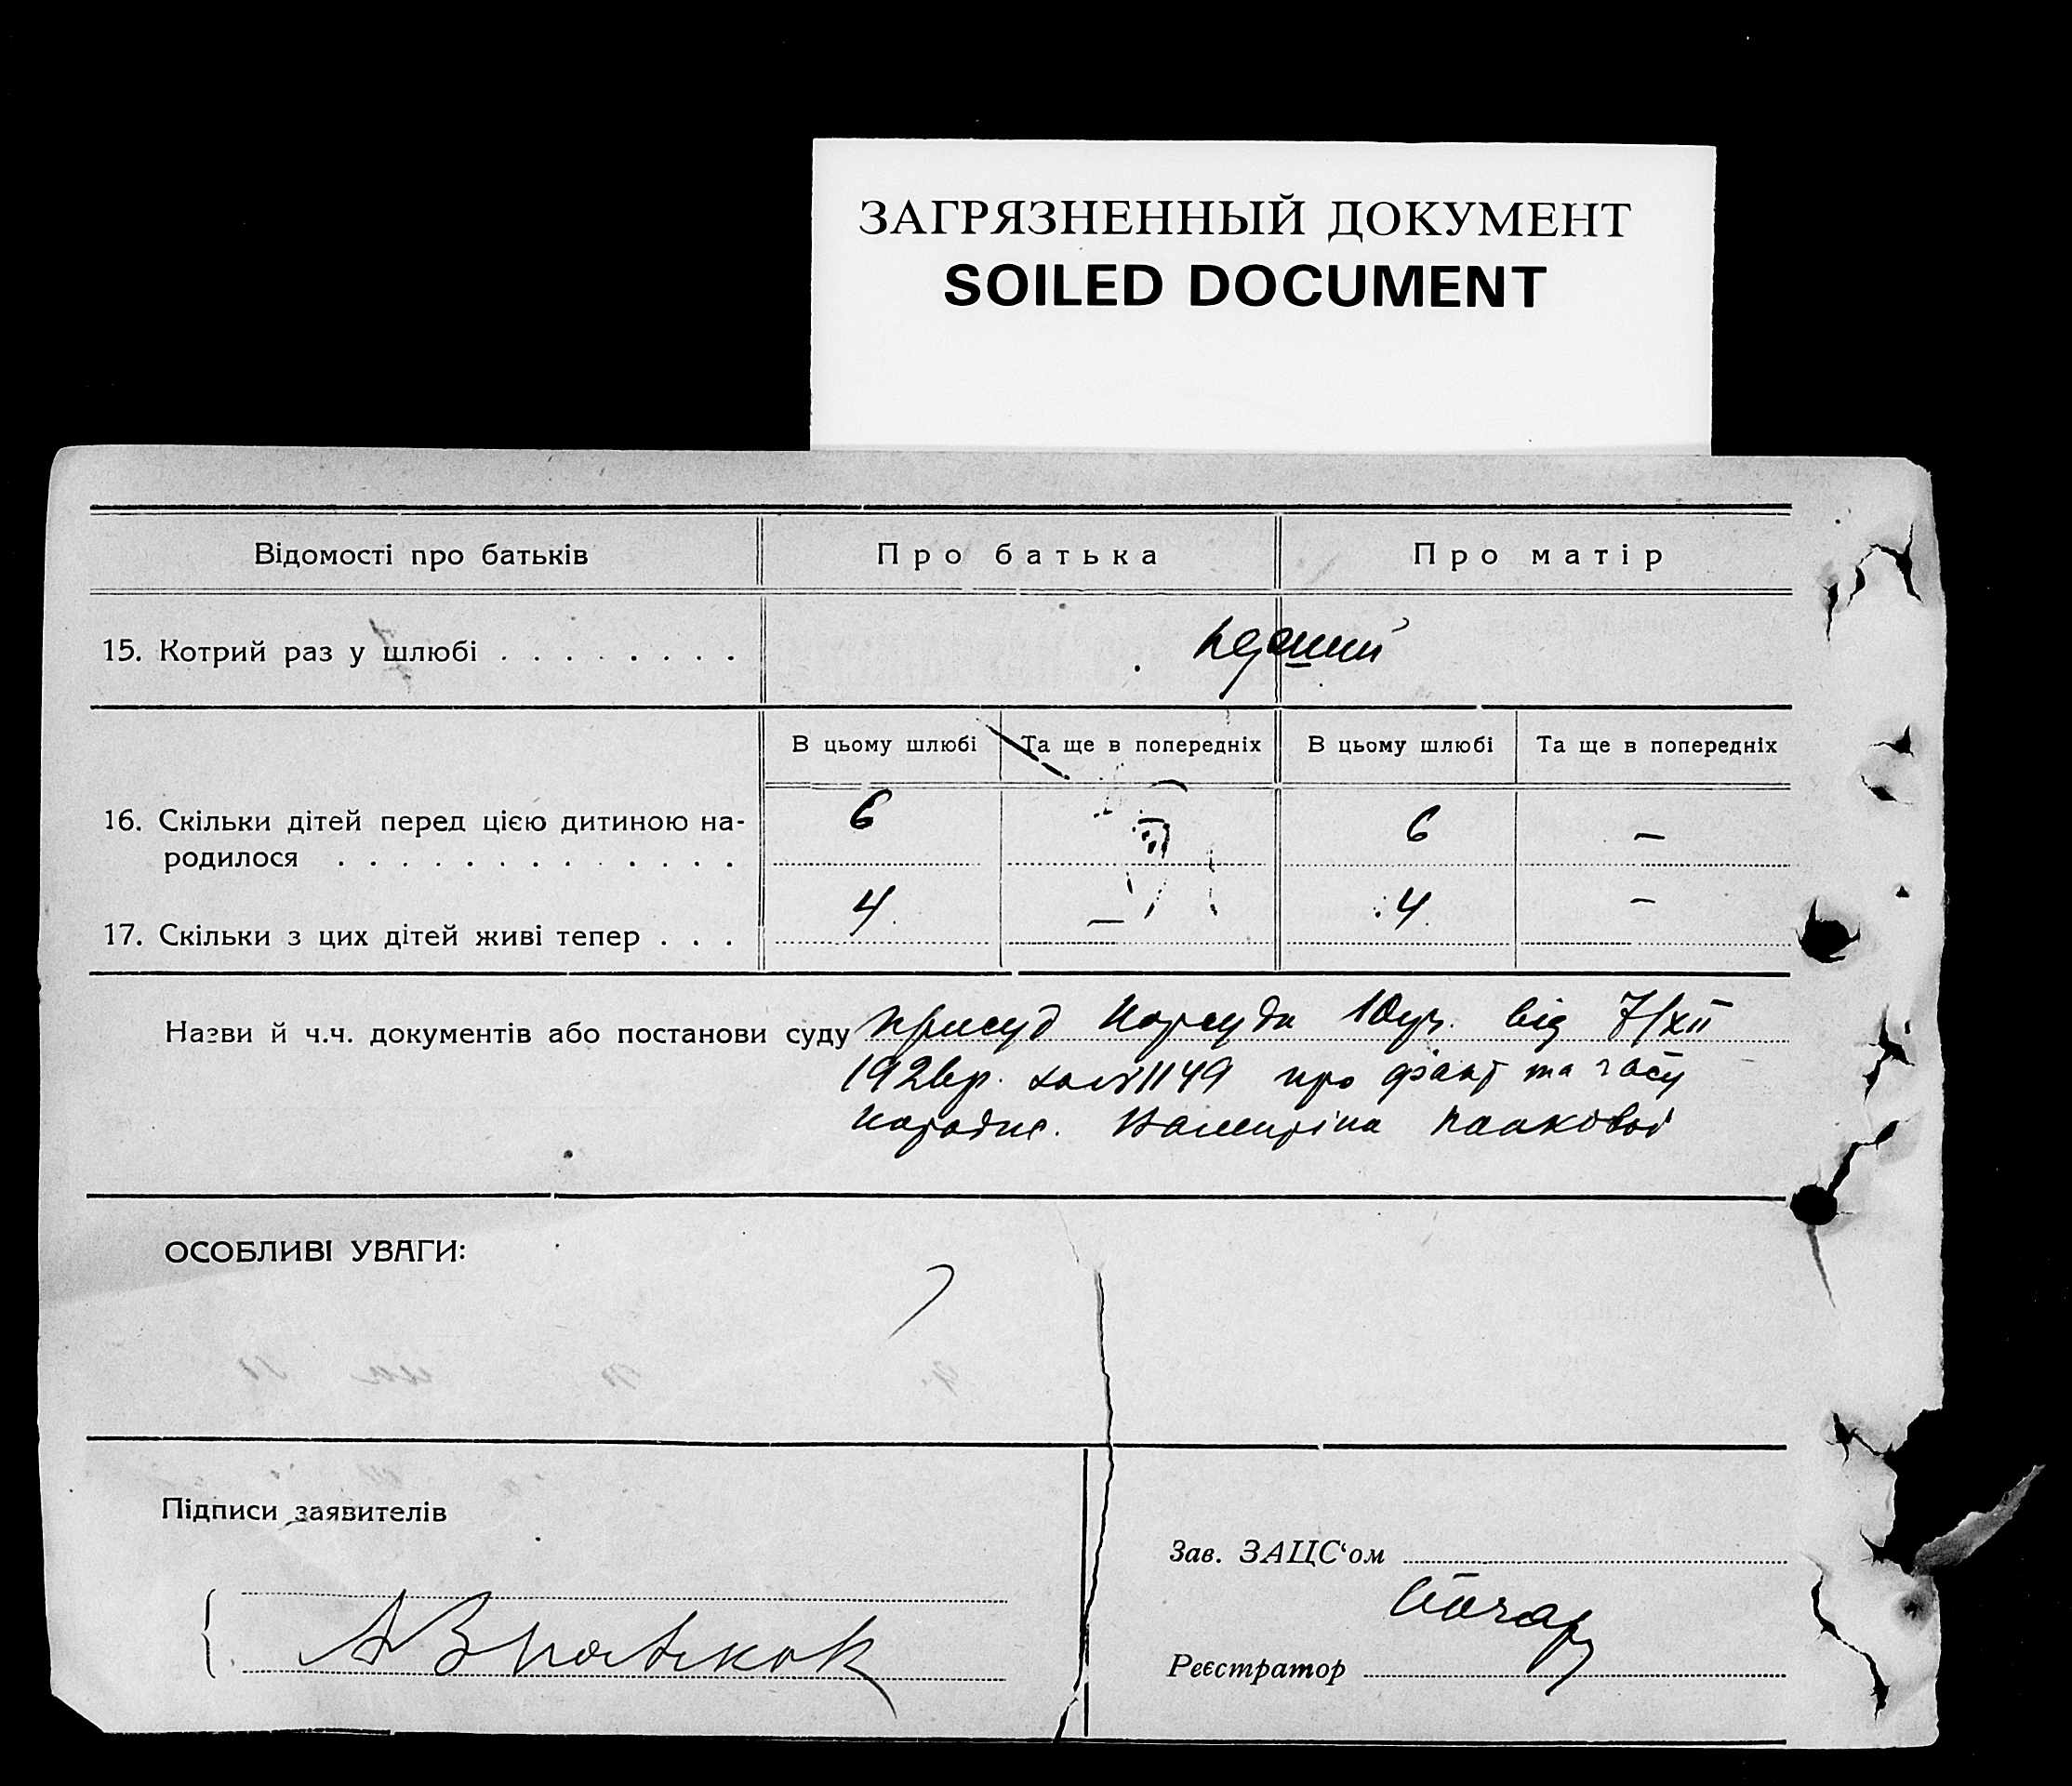 ЗАГРЯЗНЕННЫЙ ДОКУМЕНТ
SOILED DOCUMENT
Відомості про батьків
Про батька
Про матір
15. Котрий раз у шлюбі . . . . . . . .
перший
В цьому шлюбі
Та ще в попередніх
В цьому шлюбі
Та ще в попередніх
16. Скільки дітей перед цією дитиною на-
родилося . . . . . . . . . . . . .
6
6
—
17. Скільки з цих дітей живі тепер . . .
4
—
4
—
Назви й ч.ч. документів або постанови суду присуд Нарсуда 10 уч. від 7/XII
1926р. 1149 про факт та часу
народж.
ОСОБЛИВІ УВАГИ:
Підписи заявителів
Зав. ЗАЦС‘ом
Реєстратор